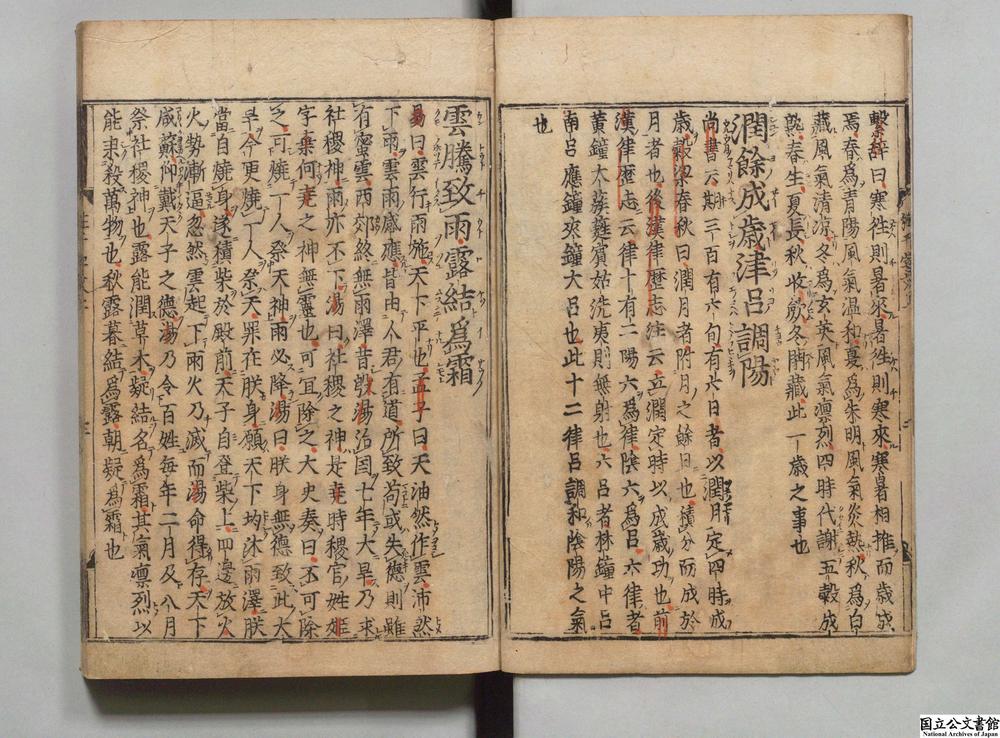 繫辭曰寒往則暑來暑往則寒來寒暑相推而歲成
焉春爲青陽風氣温和夏爲朱明風氣炎熱秋爲白
藏風氣清涼冬爲玄英風氣凛烈四時代謝五穀成
熟春生夏長秋收歛冬閉藏此一歲之事也
潤餘成歲律呂調陽
尚書云期三百有六旬有六日者以潤月定四時成
歲穀梁春秋曰潤月者附月之餘日也積分而成於
月者也後漢律歷志註云立潤定時以成歲功也前
漢律歷志云律十有二陽六爲律陰六爲呂六律者
黄鐘大蔟蕤賔姑洗夷則無射也六呂者林鐘中呂
南呂應鐘夾鐘大呂也此十二律呂調和陰陽之氣
也
雲騰致雨露結爲霜
易曰雲行雨施天下平也孟子曰天油然作雲沛然
下雨雲雨感應皆由人君有道所致苟或失德則雖
有蜜雲西郊終無雨澤昔殷湯治国七年大旱乃求
社稷神雨亦不下湯曰社稷之神是堯時稷官姓姬
字棄何堯之神無靈也可宜除之大史奏曰不可除
之可燒一人祭天神雨必降湯曰朕身無德致此大
旱今更燒一人祭天罪在朕身願天下均沐雨澤朕
當自燒身遂積柴於殿前天子自登柴上四邊放火
火勢漸逼忽然雲起下雨火乃滅而湯命得存天下
咸蘇仰戴天子之德湯乃令百姓每年二月及八月
祭社稷神也露能潤草木凝結名爲霜其氣凛烈以
能肅殺萬物也秋露暮結爲露朝凝爲霜也
国立公文書館
National Archives of Japan